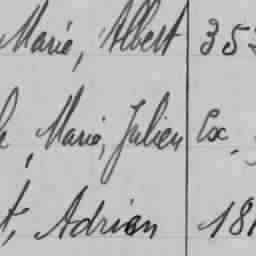 Marie, Albert 353
, Marie, Julien Ex.
t, Adrien 181